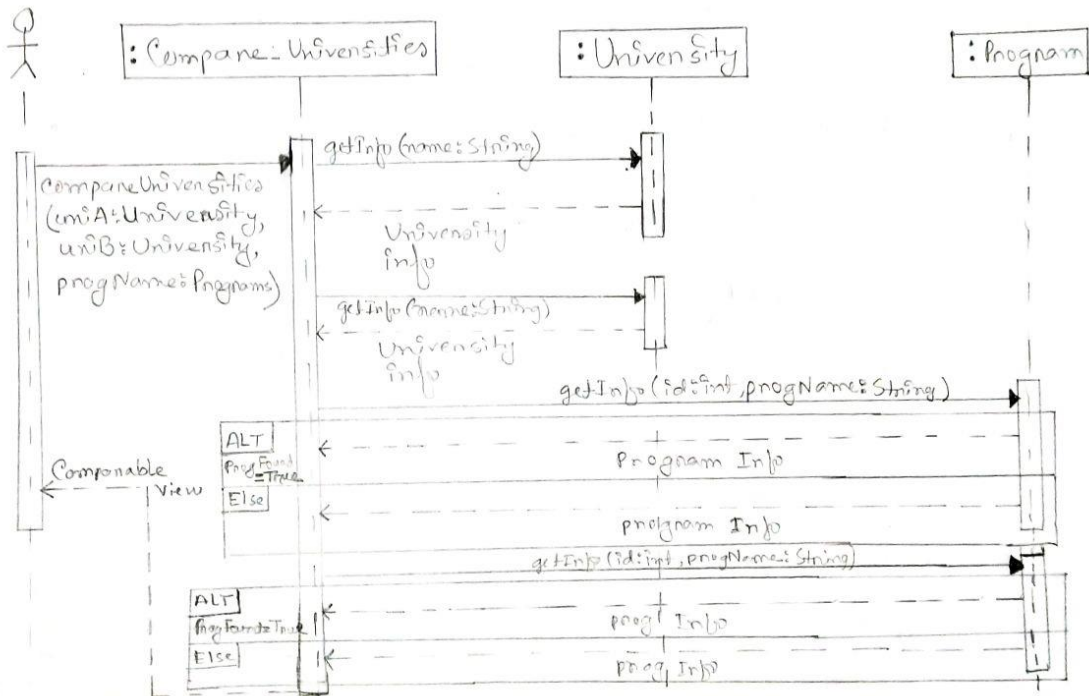 : Compare-Universities
: University
: Program
getInfo (name: String)
compareUniversities
(uniA: University,
uniB: University,
progName: Programs)
University
info
getInfo (name: String)
University
info
getInfo (id: int, progName: String)
ALT
Program Info
Prog Found
= True
Comparable
View
Else
program Info
getInfo (id: int, progName: String)
ALT
prog Info
ProgFound=True
Else
prog Info